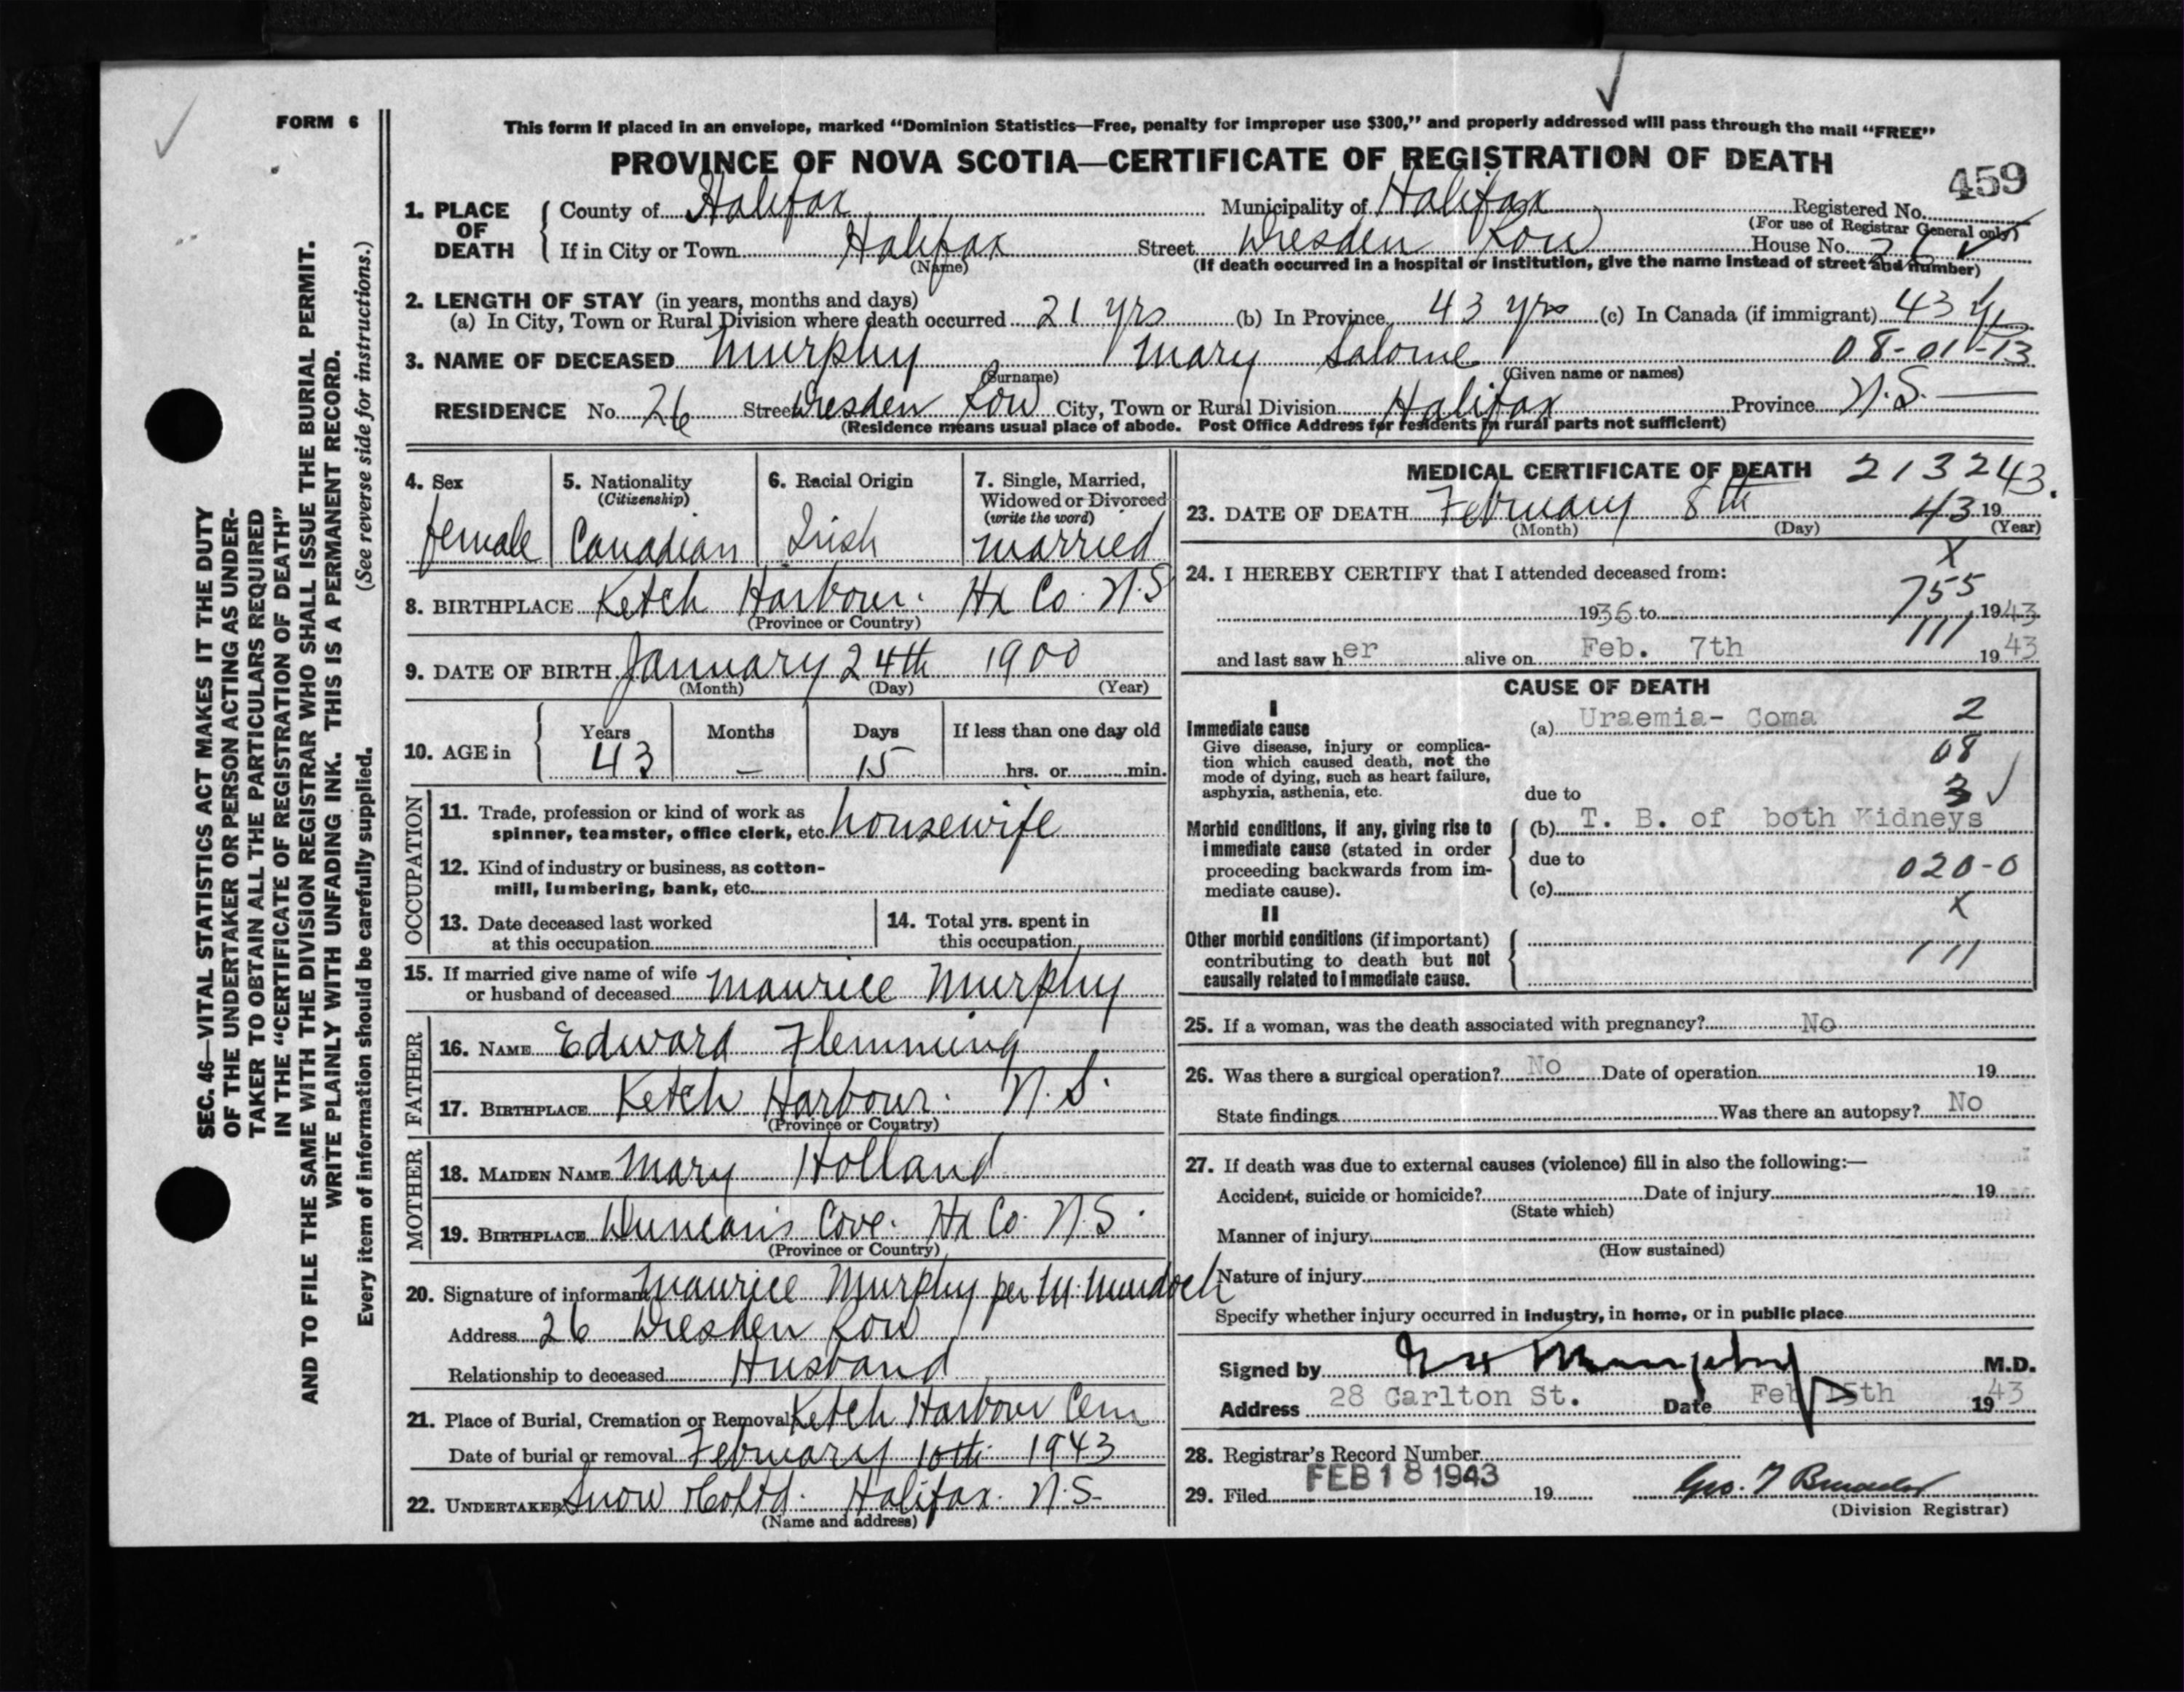 FORM 6
This form if placed in an envelope, marked “Dominion Statistics—Free, penalty for improper use $300,” and properly addressed will pass through the mail “FREE”
PROVINCE OF NOVA SCOTIA—CERTIFICATE OF REGISTRATION OF DEATH
459
1. PLACE OF DEATH
County of Halifax Municipality of Halifax Registered No.
(For use of Registrar General only)
If in City or Town Halifax Street Dresden Row House No. 26
(Name) (If death occurred in a hospital or institution, give the name instead of street and number)
2. LENGTH OF STAY (in years, months and days)
(a) In City, Town or Rural Division where death occurred 21 yrs (b) In Province 43 yrs (c) In Canada (if immigrant) 43 y
3. NAME OF DECEASED Murphy Mary Salome 08-01-13
(Surname) (Given name or names)
RESIDENCE No. 26 Street Dresden Row City, Town or Rural Division Halifax Province N.S.
(Residence means usual place of abode. Post Office Address for residents in rural parts not sufficient)
4. Sex
female
5. Nationality
(Citizenship)
Canadian
6. Racial Origin
Irish
7. Single, Married,
Widowed or Divorced
(write the word)
married
8. BIRTHPLACE Ketch Harbour. Hx Co. N.S
(Province or Country)
9. DATE OF BIRTH January 24th 1900
(Month) (Day) (Year)
10. AGE in
Years Months Days If less than one day old
43 – 15 hrs. or min.
OCCUPATION
11. Trade, profession or kind of work as
spinner, teamster, office clerk, etc. housewife
12. Kind of industry or business, as cotton-
mill, lumbering, bank, etc.
13. Date deceased last worked
at this occupation
14. Total yrs. spent in
this occupation
15. If married give name of wife
or husband of deceased Maurice Murphy
FATHER
16. NAME Edward Flemming
17. BIRTHPLACE Ketch Harbour. N.S.
(Province or Country)
MOTHER
18. MAIDEN NAME Mary Holland
19. BIRTHPLACE Duncan's Cove. Hx Co. N.S.
(Province or Country)
20. Signature of informant Maurice Murphy per M. Murdoch
Address 26 Dresden Row
Relationship to deceased Husband
21. Place of Burial, Cremation or Removal Ketch Harbour Cem
Date of burial or removal February 10th 1943
22. UNDERTAKER Snow & Co Ltd. Halifax. N.S.
(Name and address)
MEDICAL CERTIFICATE OF DEATH 213243.
23. DATE OF DEATH February 8th 43 19
(Month) (Day) (Year)
X
24. I HEREBY CERTIFY that I attended deceased from:
755
1936 to 1943
111
and last saw her alive on Feb. 7th 1943
CAUSE OF DEATH
I
Immediate cause
Give disease, injury or complica-
tion which caused death, not the
mode of dying, such as heart failure,
asphyxia, asthenia, etc.
(a) Uraemia- Coma 2
08
due to 3
Morbid conditions, if any, giving rise to
immediate cause (stated in order
proceeding backwards from im-
mediate cause).
(b) T. B. of both Kidneys
due to
020-0
(c)
X
II
Other morbid conditions (if important)
contributing to death but not
causally related to immediate cause.
111
25. If a woman, was the death associated with pregnancy? No
26. Was there a surgical operation? No Date of operation 19
State findings Was there an autopsy? No
27. If death was due to external causes (violence) fill in also the following:—
Accident, suicide or homicide? Date of injury 19
(State which)
Manner of injury
(How sustained)
Nature of injury
Specify whether injury occurred in industry, in home, or in public place
Signed by Murphy M.D.
Address 28 Carlton St. Date Feb 15th 1943
28. Registrar's Record Number
29. Filed FEB 18 1943 19 Geo. T
(Division Registrar)
SEC. 46—VITAL STATISTICS ACT MAKES IT THE DUTY
OF THE UNDERTAKER OR PERSON ACTING AS UNDER-
TAKER TO OBTAIN ALL THE PARTICULARS REQUIRED
IN THE “CERTIFICATE OF REGISTRATION OF DEATH”
AND TO FILE THE SAME WITH THE DIVISION REGISTRAR WHO SHALL ISSUE THE BURIAL PERMIT.
WRITE PLAINLY WITH UNFADING INK. THIS IS A PERMANENT RECORD.
Every item of information should be carefully supplied. (See reverse side for instructions.)